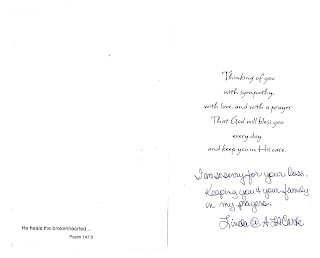 Thinking of you
with sympathy,
with love, and with a prayer
That God will bless you
every day
and keep you in His care.
I am so sorry for your loss.
Keeping you & your family
in my prayers.
Linda @
He heals the brokenhearted...
Psalm 147:3